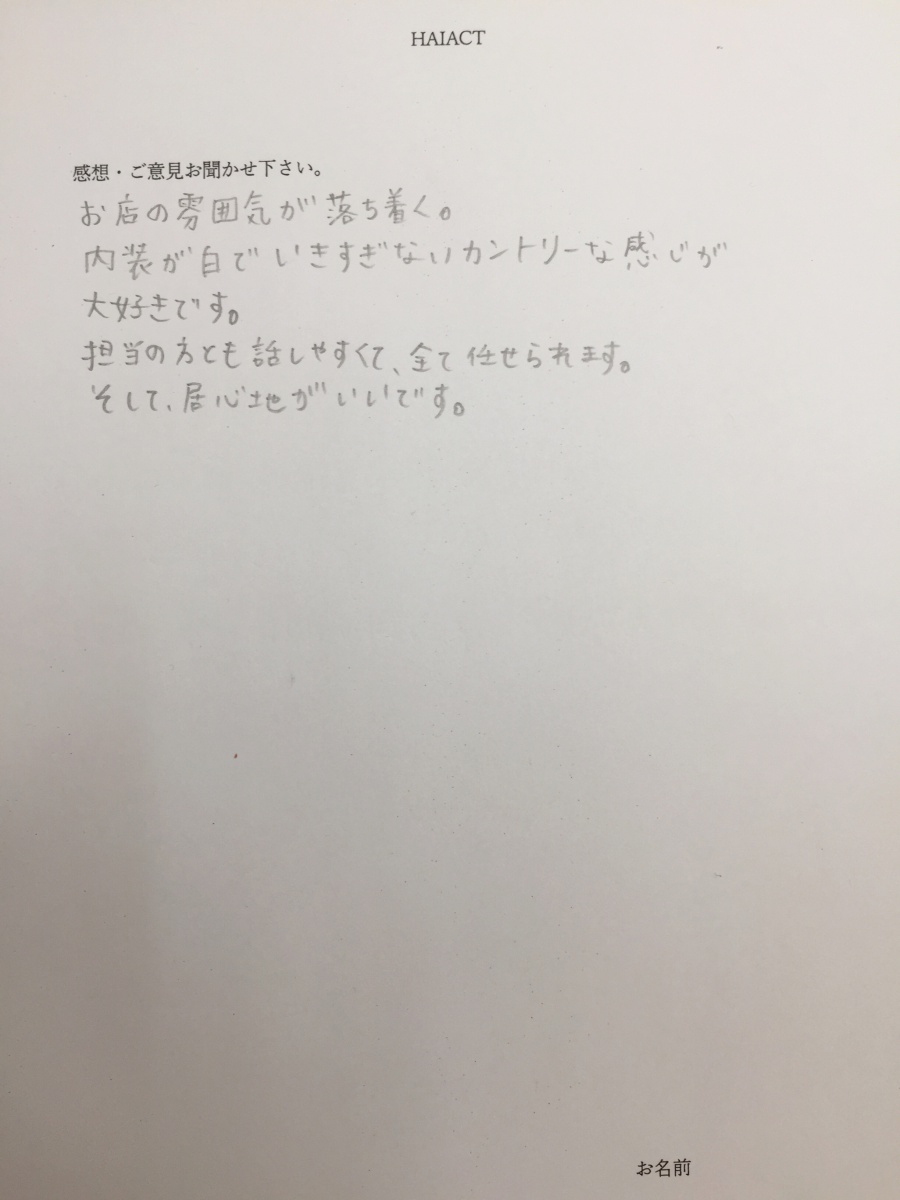 HAIACT
感想・ご意見お聞かせ下さい。
お店の雰囲気が落ち着く。
内装が白でいきすぎないカントリーな感じが
大好きです。
担当の方とも話しやすくて、全て任せられます。
そして、居心地がいいです。
お名前